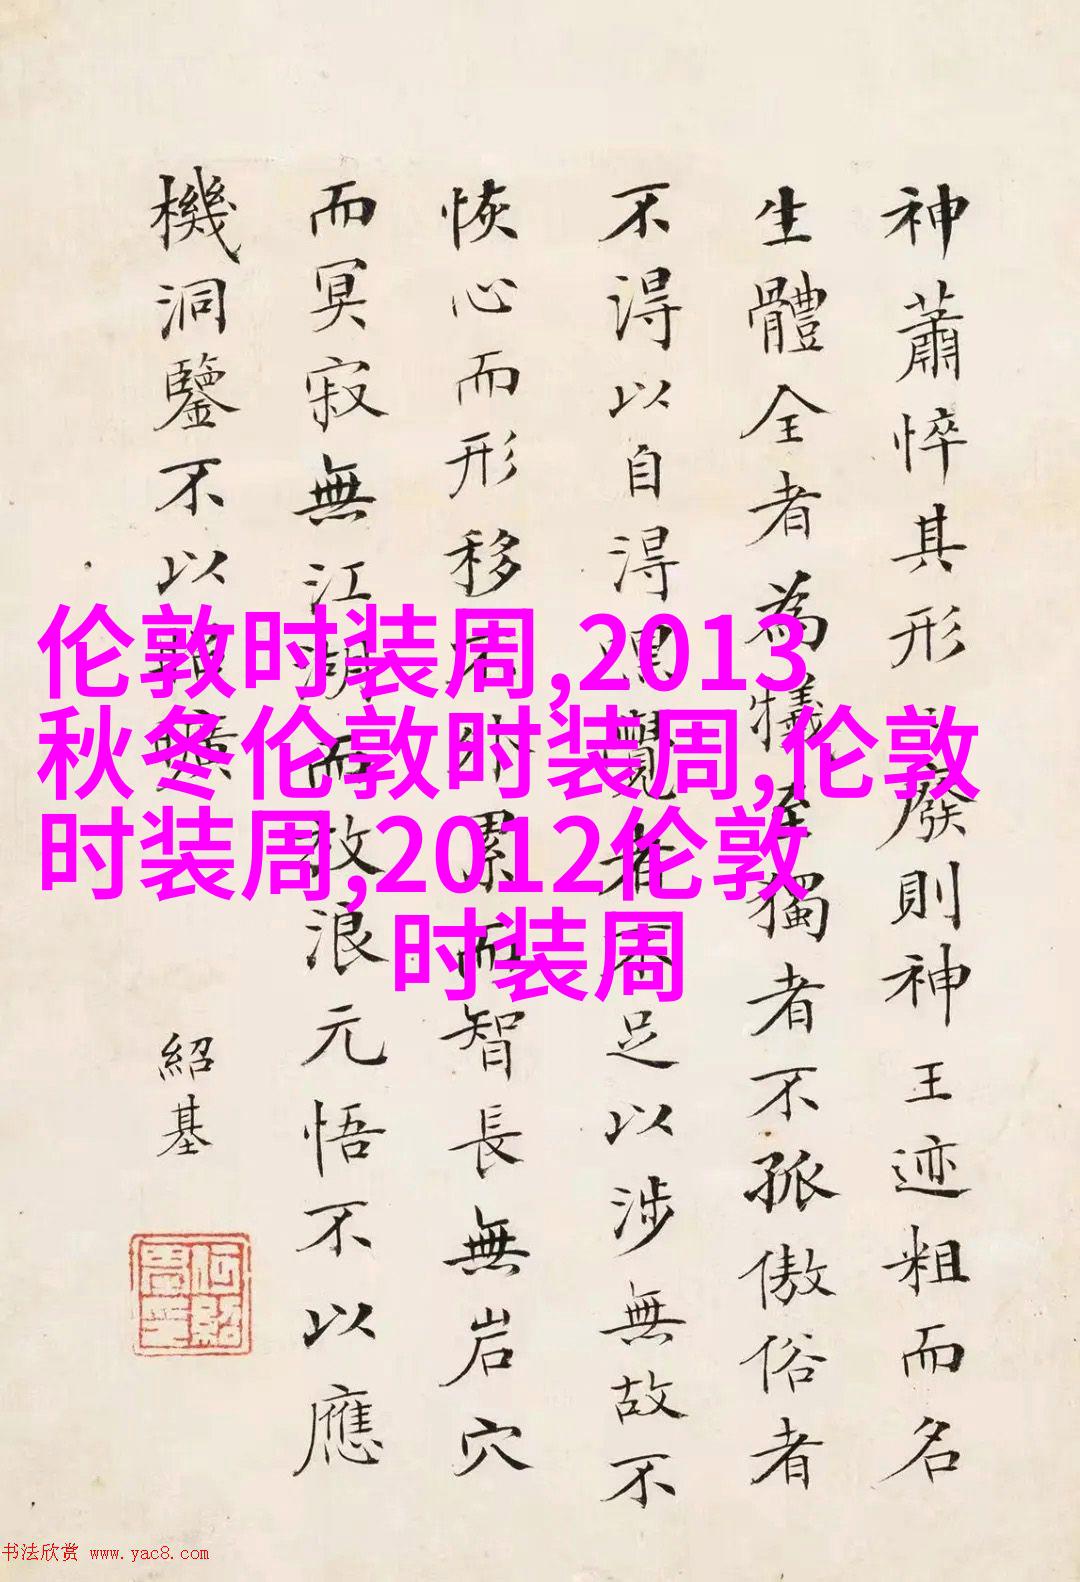 神蕭悴其形廢則神王迹粗而名
生體全者為犧至獨者不孤傲俗者
不得以自得覽者不足以涉無故不
恢心而形移不外累而智長無岩穴
而冥寂無江湖而放浪元悟不以應
機洞鑒不以
紹基
伦敦时装周,2013
秋冬伦敦时装周,伦敦
时装周,2012伦敦
时装周
书法欣赏 www.yac8.com